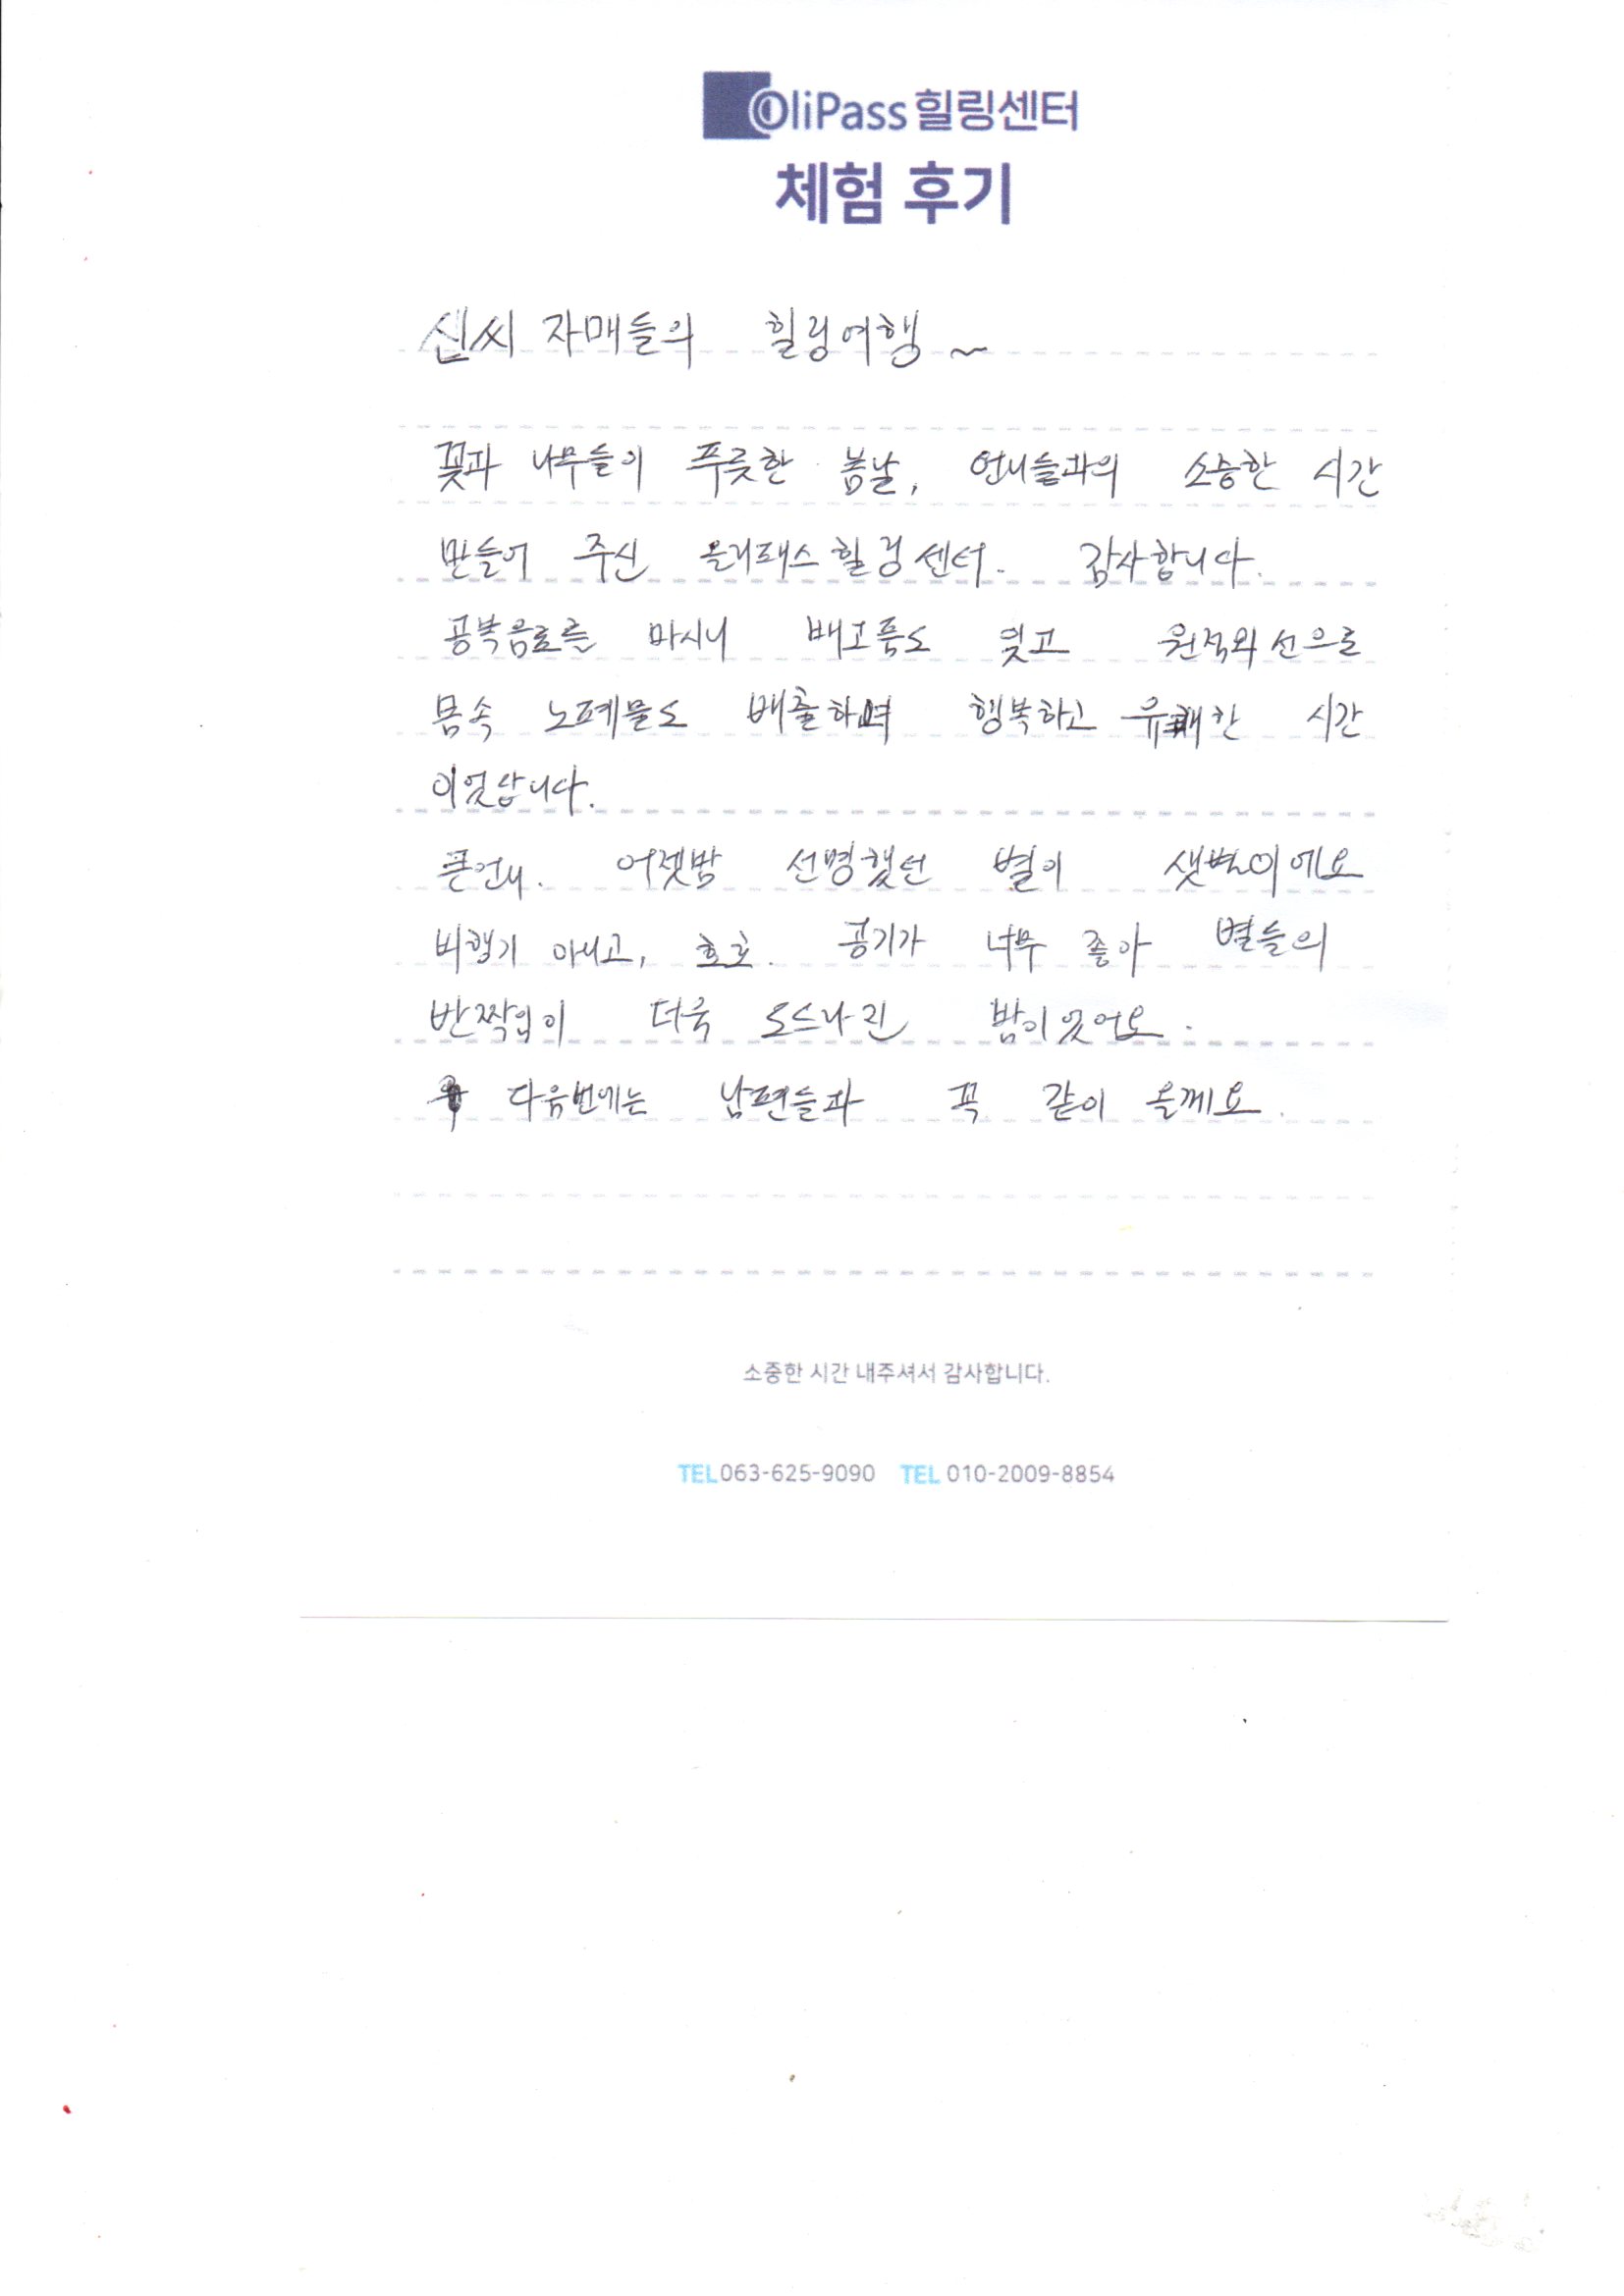 OliPass 힐링센터
체험 후기
신씨 자매들의 힐링여행~
꽃과 나무들이 푸릇한 봄날, 언니들과의 소중한 시간
만들어 주신 올리패스힐링센터. 감사합니다.
공복음료를 마시니 배고픔도 잊고 원적외선으로
몸속 노폐물도 배출하며 행복하고 유쾌한 시간
이었습니다.
큰언니. 어젯밤 선명했던 별이 샛별이에요
비행기 아니고, 호호. 공기가 너무 좋아 별들의
반짝임이 더욱 도드라진 밤이었어요.
다음번에는 남편들과 꼭 같이 올께요.
소중한 시간 내주셔서 감사합니다.
TEL 063-625-9090 TEL 010-2009-8854